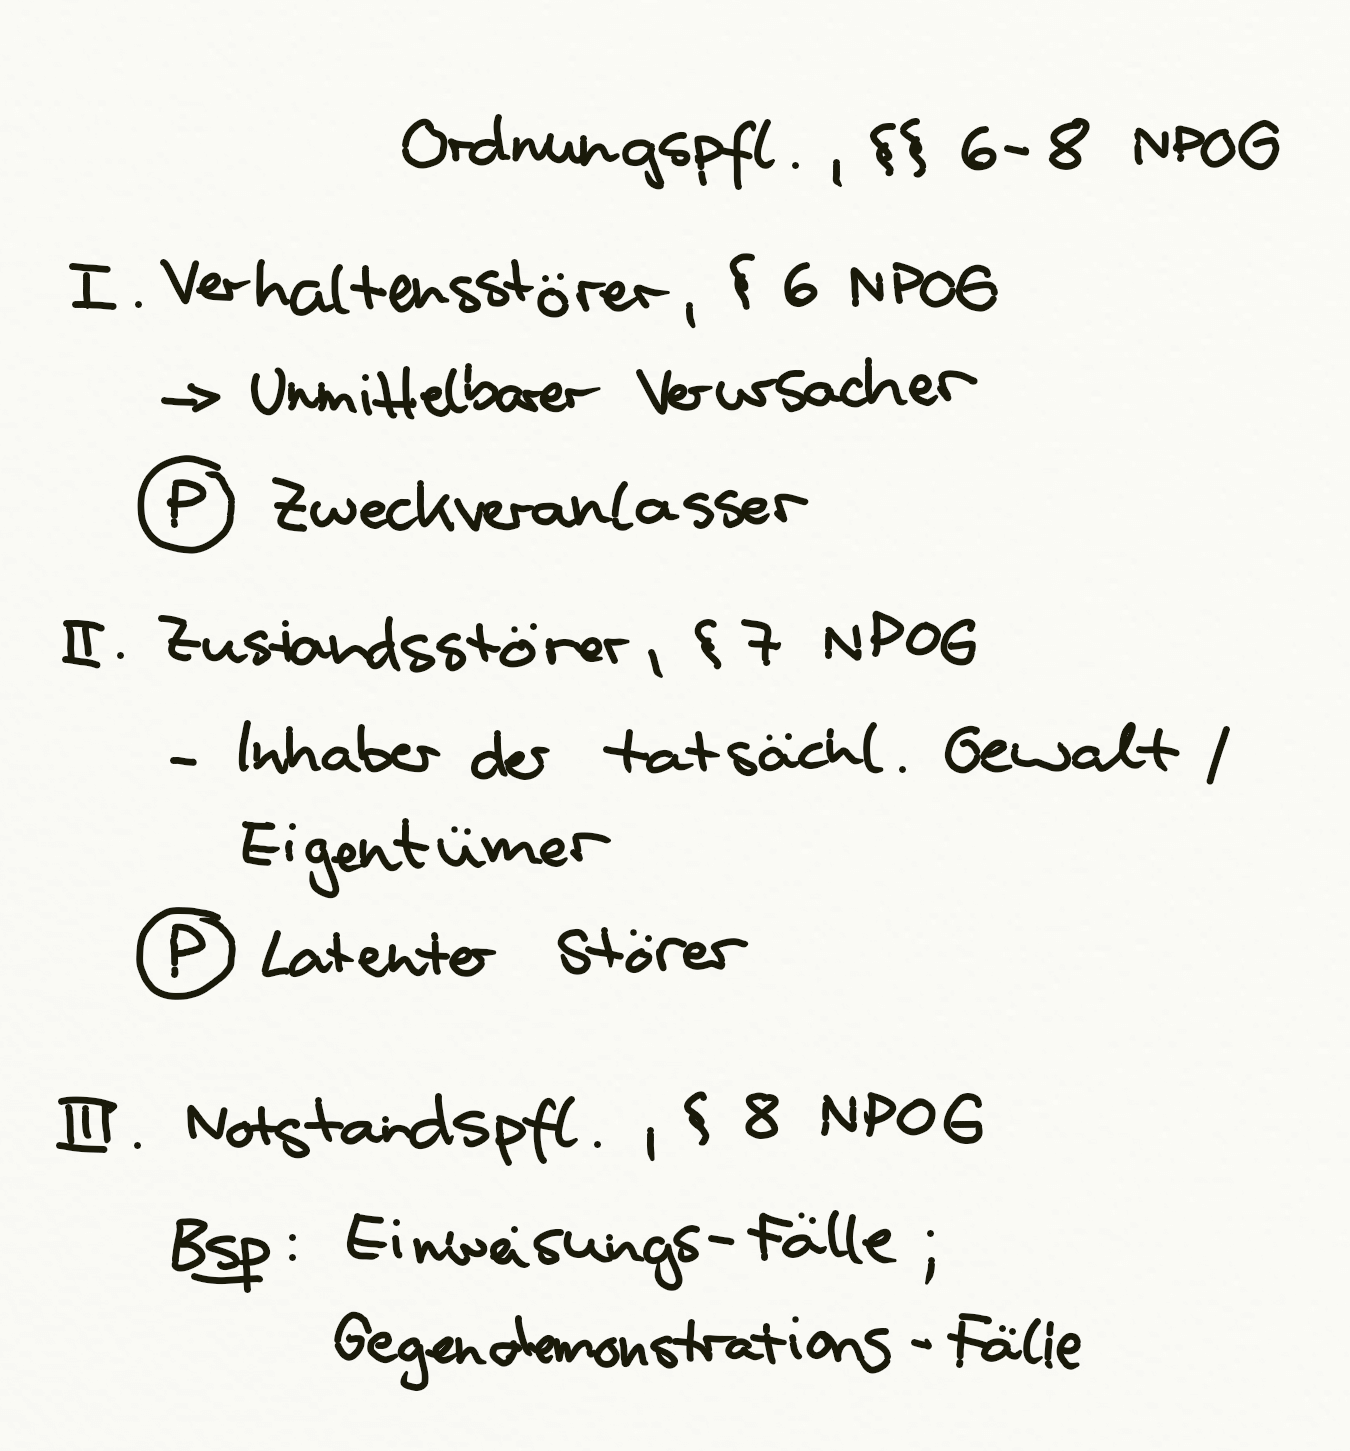 Ordnungspfl., §§ 6-8 NPOG
I. Verhaltensstörer, § 6 NPOG
→ Unmittelbarer Verursacher
Ⓟ Zweckveranlasser
II. Zustandsstörer, § 7 NPOG
- Inhaber der tatsächl. Gewalt /
Eigentümer
Ⓟ Latenter Störer
III. Notstandspfl., § 8 NPOG
Bsp: Einweisungs-Fälle;
Gegendemonstrations-Fälle